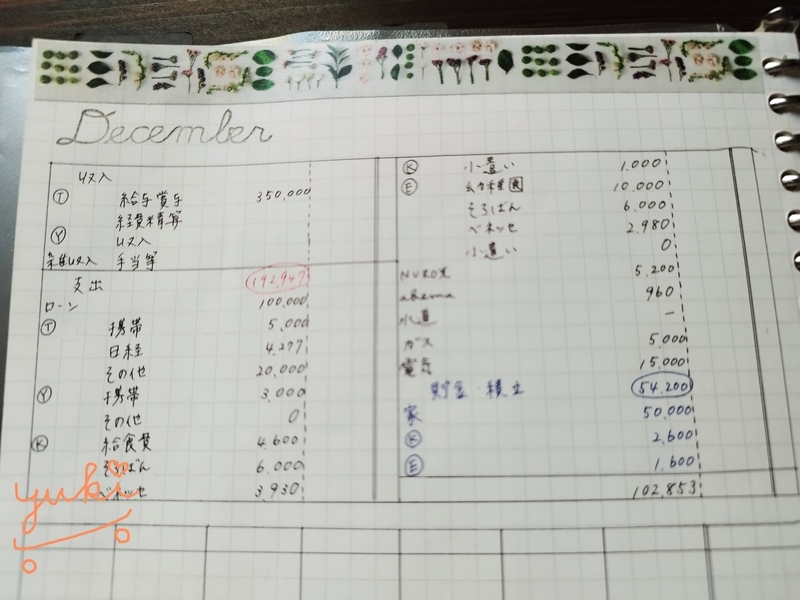 December
収入
Ⓣ 給与賞与 350,000
経費精算
Ⓨ 収入
雑収入 手当等
支出 192,947
ローン 100,000
Ⓣ 携帯 5,000
日経 4,277
その他 20,000
Ⓨ 携帯 3,000
その他 0
Ⓚ 給食費 4,600
そろばん 6,000
ベネッセ 3,930
Ⓚ 小遣い 1,000
Ⓔ 10,000
そろばん 6,000
ベネッセ 2,980
小遣い 0
NURO光 5,200
abema 960
水道 —
ガス 5,000
電気 15,000
貯金・積立 54,200
家 50,000
Ⓚ 2,600
Ⓔ 1,600
102,853
yuki